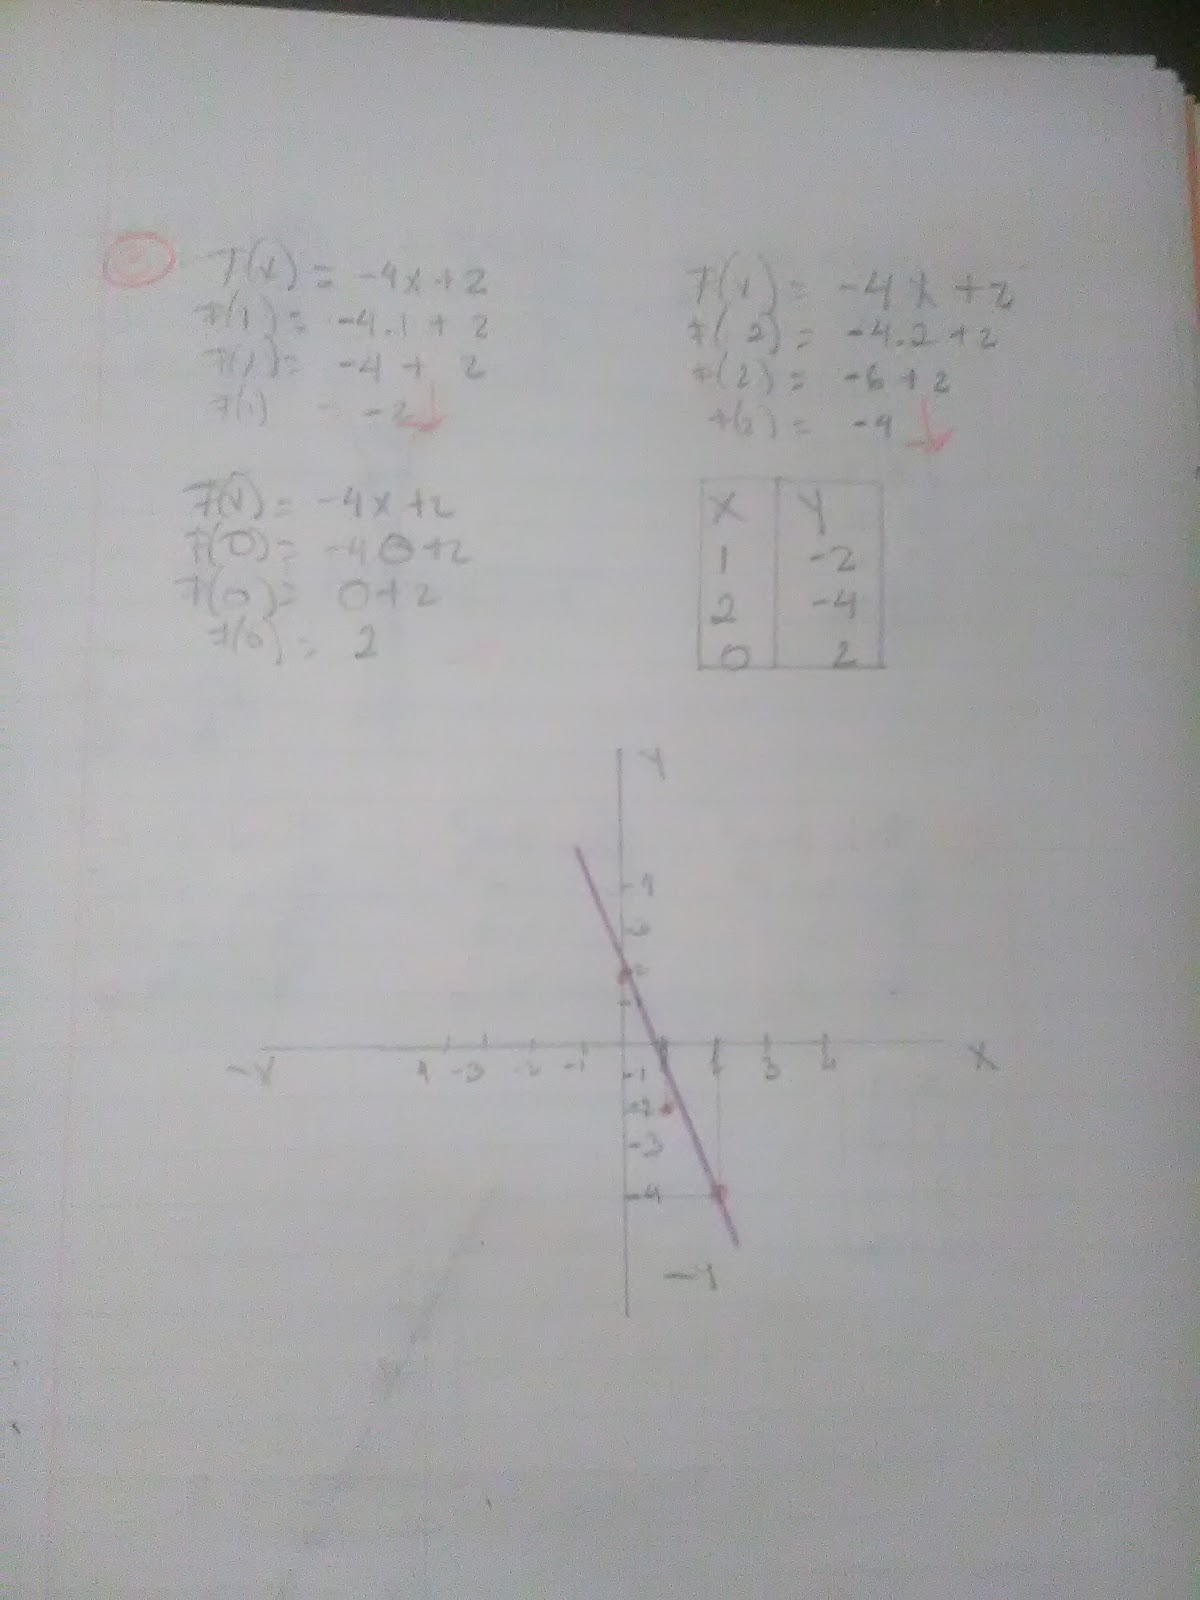 F(x) = -4x + 2
F(1) = -4.1 + 2
F(1) = -4 + 2
F(1) = -2
F(x) = -4x + 2
F(2) = -4.2 + 2
F(2) = -6 + 2
F(2) = -4
F(x) = -4x + 2
F(0) = -4 0 + 2
F(0) = 0 + 2
F(0) = 2
X Y
1 -2
2 -4
0 2
Y
4
3
2
1
-X 4 -3 -2 -1 1 2 3 4 X
-1
-2
-3
-4
-Y